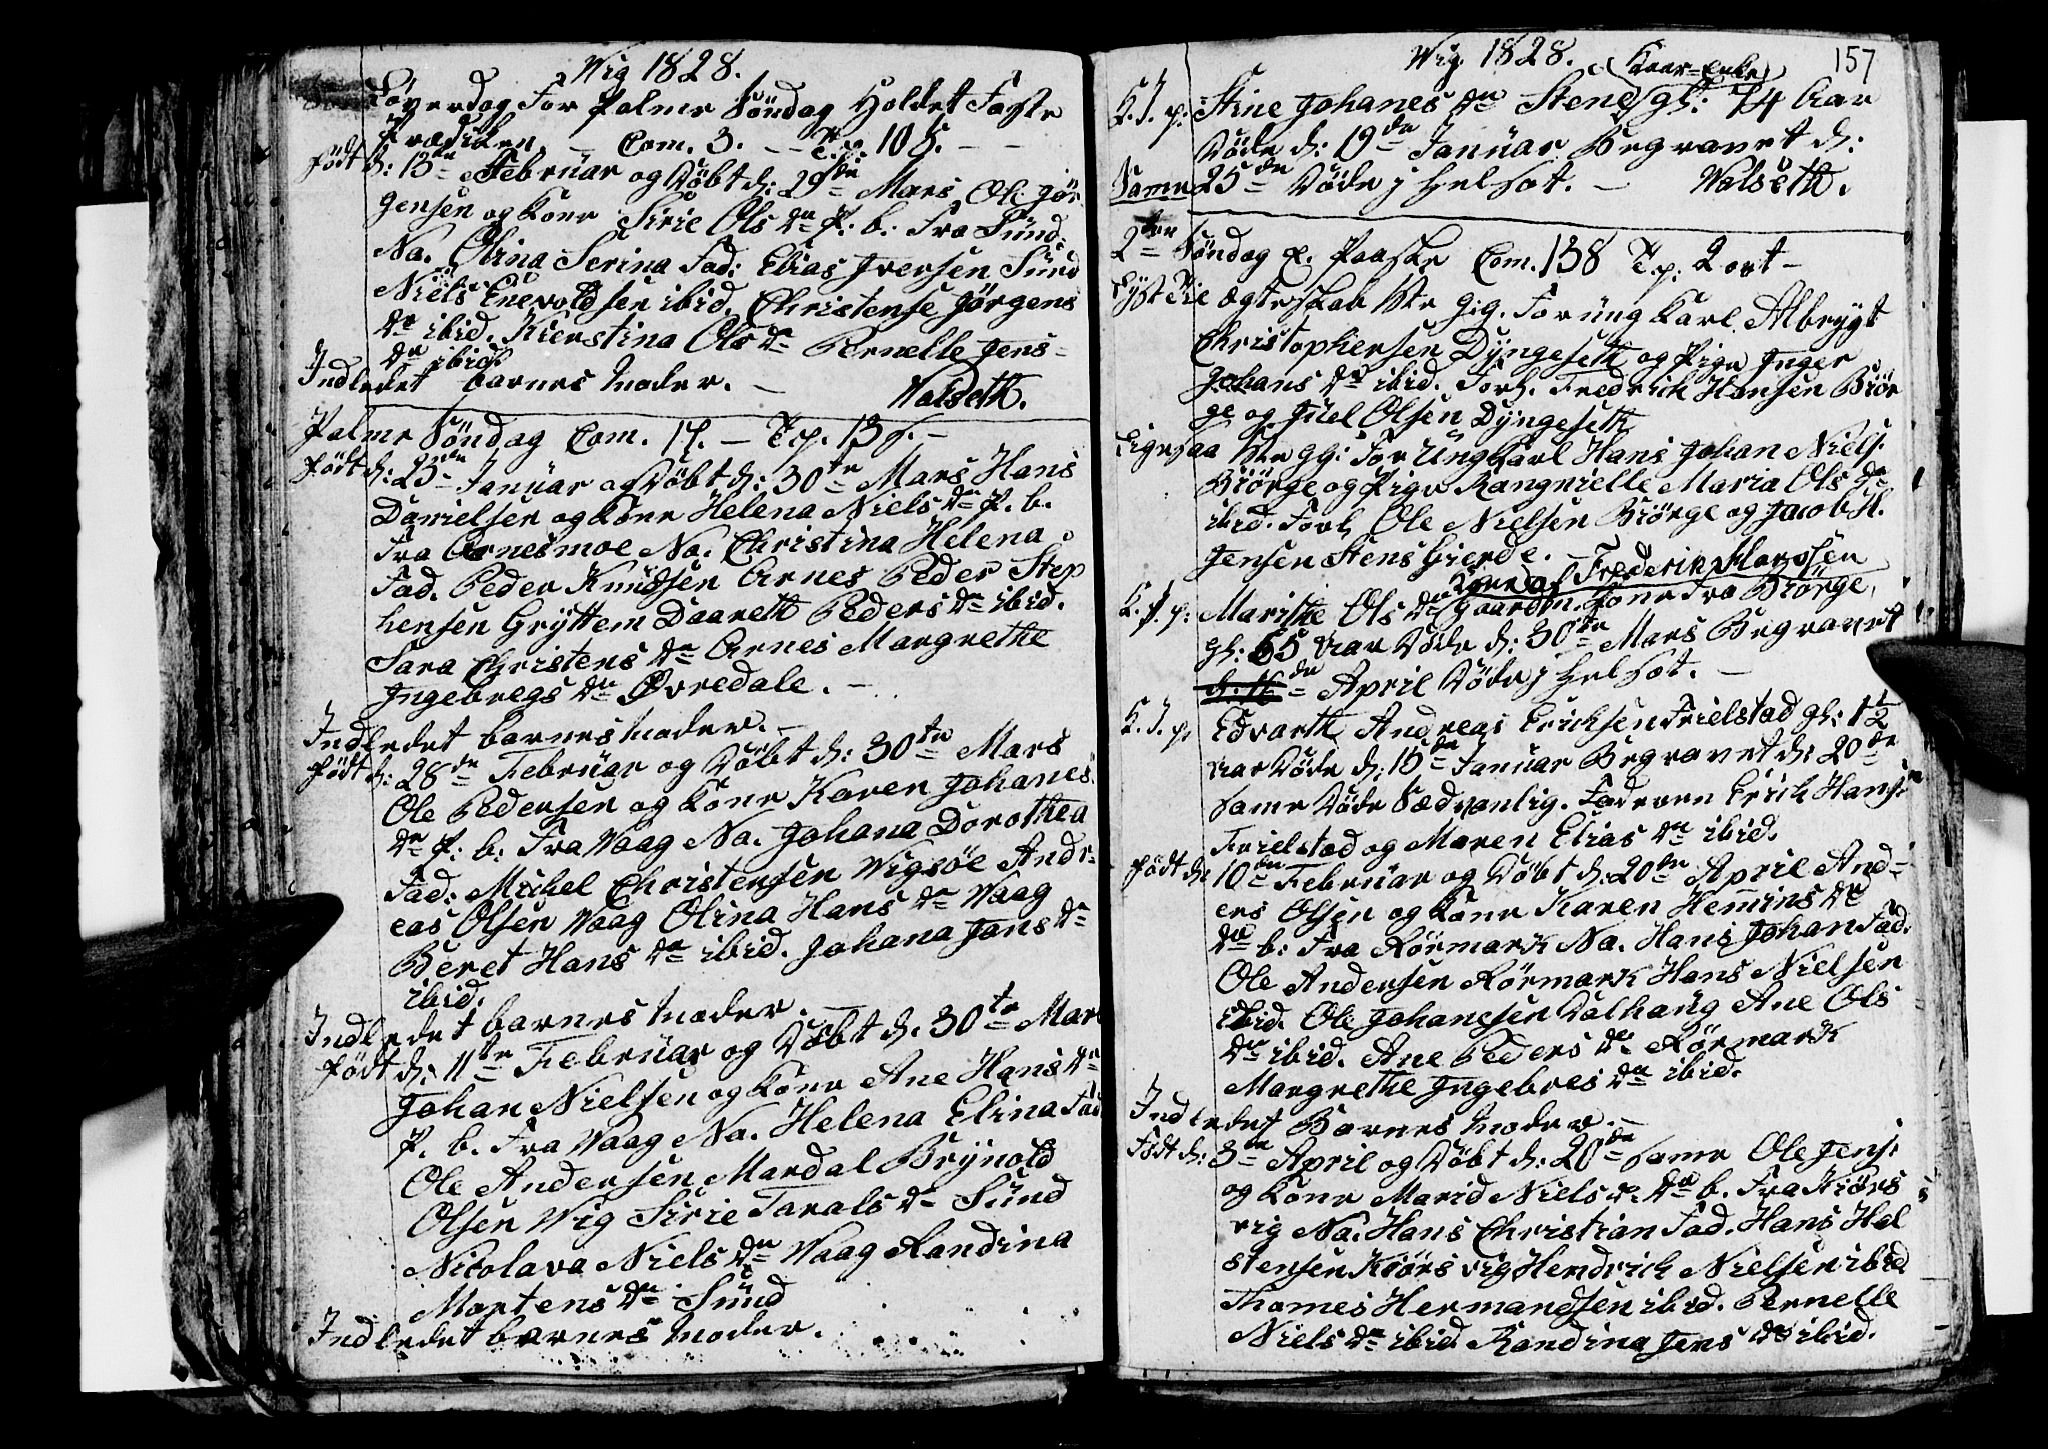 Wig 1828.
Löverdag For Palme Söndag Holdet Faste
Prædiken. — Com. 3. — T.p. 105. —
født d: 13de Februar og Döbt d: 29de Mars Ole Jör-
gensen og Kone Sirie Ols dr P. b. Fra Sund
Na. Olina Serina Fad: Elias Iversen Sund
Niels Enevoldsen ibid. Christense Jörgens
dr ibid. Kierstina Ols dr Pernelle Jens-
dr ibid.
Indledet barnes Moder. — Walseth.
Palme Söndag Com. 17. — T.p. 135. —
født d: 23de Januar og Döbt d: 30te Mars Hans
Danielsen og Kone Helena Niels dr P. b.
Fra Arnesmoe Na. Christina Helena
Fad. Peder Knudsen Arnes Peder Step
hensen Gryttem Daareth Peders dr ibid.
Sara Christens dr Arnes Margrethe
Ingebregs dr Øvredale. —
Indledet barnes Moder. —
født d: 28de Februar og Döbt d: 30te Mars
Ole Pedersen og Kone Karen Johanes
dr P: b: Fra Vaag Na. Johana Dorothea
Fad: Mikel Christensen Wigsöe Andr-
eas Olsen Vaag Olina Hans dr Vaag
Beret Hans dr ibid. Johana Jans dr
ibid.
Indledet barnes Moder. —
født d: 11te Februar og Döbt d. 30te Mars
Johan Nielsen og Kone Ane Hans dr
P. b. Fra Vaag Na. Helena Elina Fad
Ole Andersen Mardal Brynold
Olsen Wig Sirie Tarals dr Sund
Nicolava Niels dr Vaag Randina
Mortens dr Sund
Indledet barnes Moder.
Wig 1828. 157
Kaar-Enke
K. J. p: Stine Johanes dr Stene gl: 74 Aar
Döde d: 19de Januar Begravet d:
25de Same Döde j Helsot. — Walseth.
2den Söndag P. Paaske Com. 138 T.p. 2 ort —
Lyst Tie Ægteskab 1ste Gig. For ung Karl Albrygt
Christophersen Dyngeseth og Pige Inger
Johans dr ibid. Forl. Fredrick Hansen Biör
ge og Juel Olsen Dyngeseth
Ligesaa 1ste gg: For Ungkarl Hans Johan Niels:
Biörge og Pige Rangnielle Maria Ols dr
ibid. Forl. Ole Nielsen Biörge og Jacob H.
Jensen Stens Gierde. —
Frederik Morssen
K. J. p: Marithe Ols dr Gaardm. Kone Fra Biörge
gl: 65 Aar Döde d: 30te Mars Begravet
d: 16de April Döde j Helsot. —
K. J. p. Edvarth Andreas Ericksen Frielstad gl: 1 1/2
Aar Döde d: 15de Januar Begravet d: 20de
Same Döde Sædvanlig. Forældren Erick Hans:
Frielstad og Maren Elias dr ibid.
født d: 10de Februar og Döbt d: 20de April And-
ers Olsen og Kone Karen Hemins dr
dr b: Fra Rörmark Na. Hans Johan Fad:
Ole Andersen Rörmark Hans Nielsen
ibid. Ole Johanesen Dalhaug Ane Ols
dr ibid. Ane Peders dr Rörmark
Margrethe Ingebres dr ibid.
Indledet Barnes Moder. —
Födt d: 3de April og Döbt d: 20de Same Ole Jens:
og Kone Marid Niels dr b. Fra Kiörs
vig Na: Hans Christian Fad. Hans Hal
stensen Kiörs vig Hendrick Nielsen ibid
Thomes Hermandsen ibid. Pernelle
Niels dr ibid Randina Jens dr ibid.